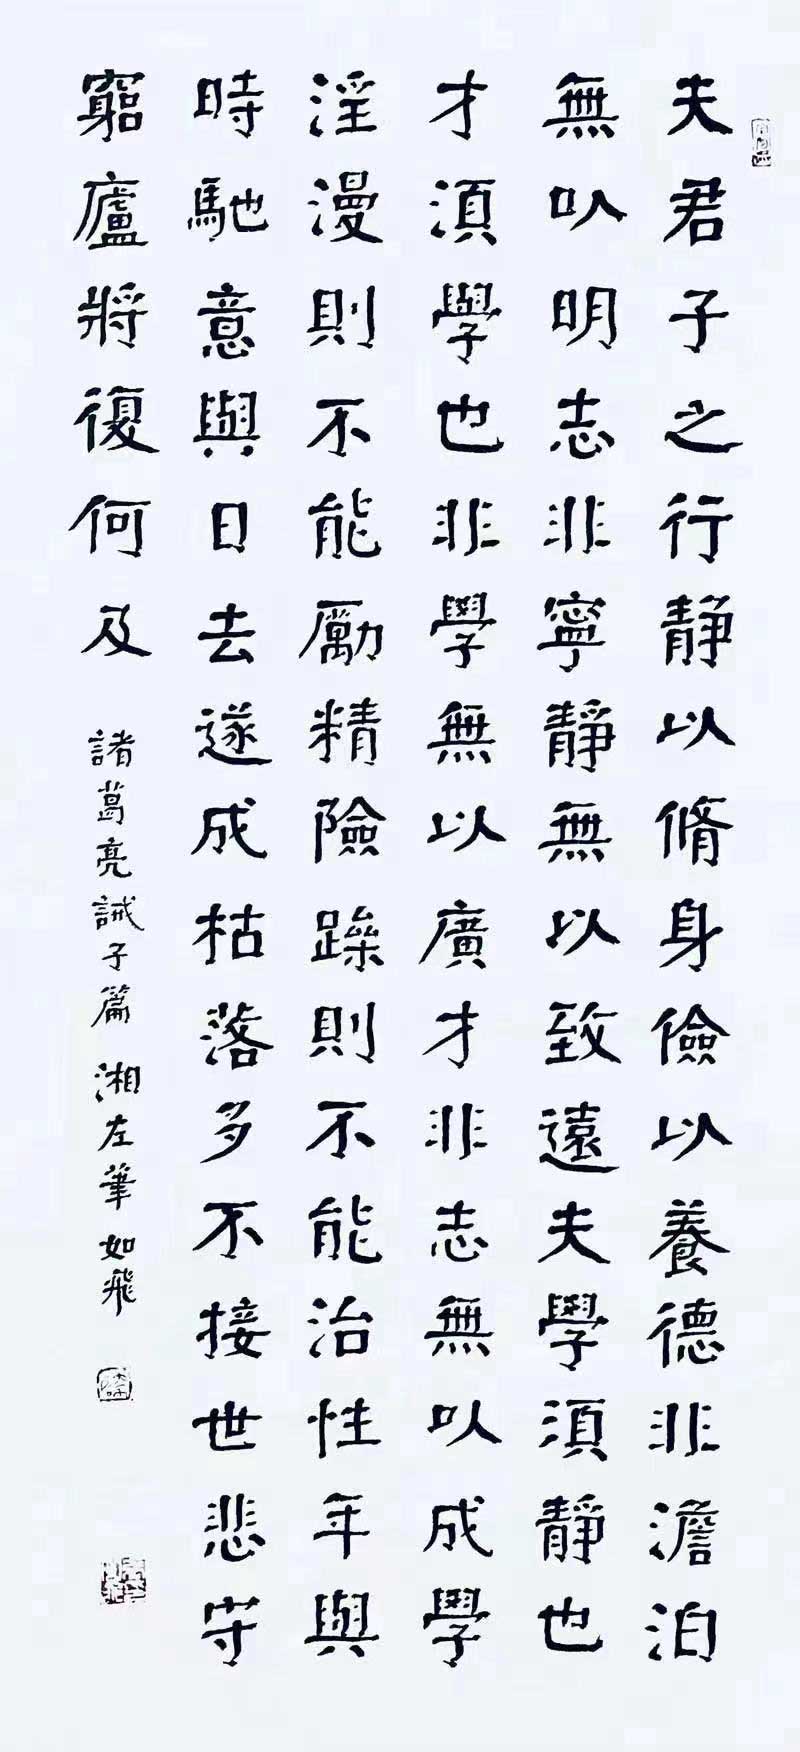 夫君子之行靜以脩身儉以養德非澹泊
無以明志非寧靜無以致遠夫學須靜也
才須學也非學無以廣才非志無以成學
淫漫則不能勵精險躁則不能治性年與
時馳意與日去遂成枯落多不接世悲守
窮廬將復何及
諸葛亮誡子篇 湘左筆如飛